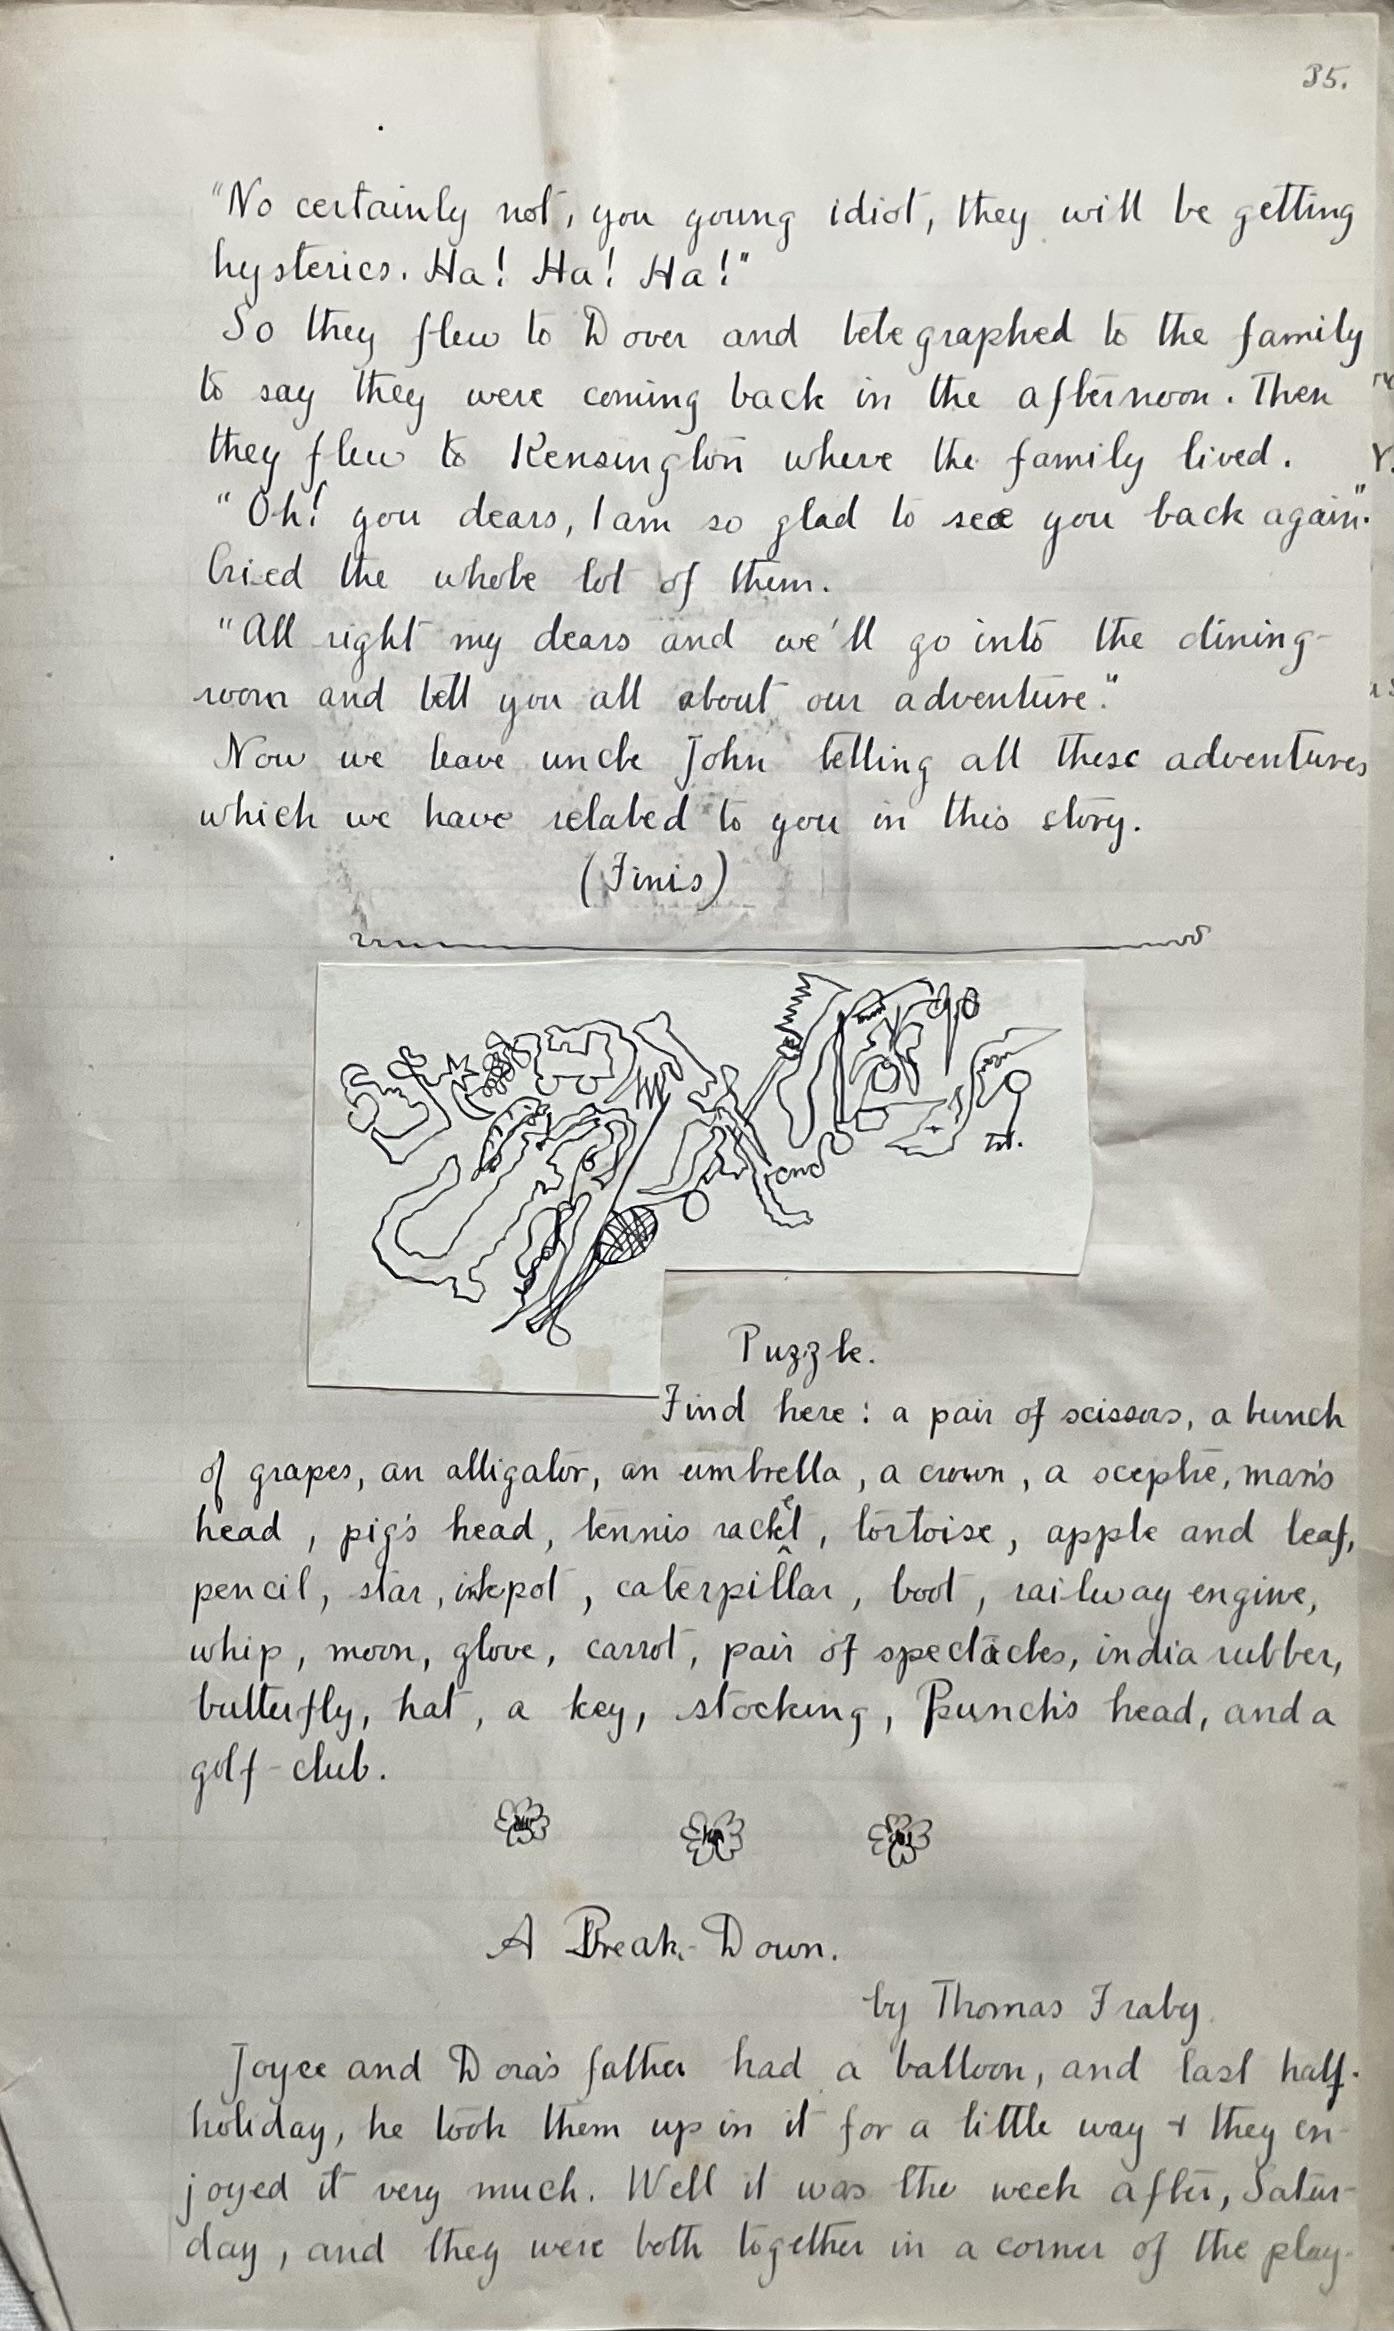 35.
"No certainly not, you young idiot, they will be getting
hysterics. Ha! Ha! Ha!"
So they flew to Dover and telegraphed to the family
to say they were coming back in the afternoon. Then
they flew to Kensington where the family lived.
"Oh! you dears, I am so glad to see you back again".
Cried the whole lot of them.
"All right my dears and we'll go into the dining-
room and tell you all about our adventure."
Now we leave uncle John telling all these adventures
which we have related to you in this story.
(Finis)
Puzzle.
Find here: a pair of scissors, a bunch
of grapes, an alligator, an umbrella, a crown, a sceptre, man's
head, pig's head, tennis racket, tortoise, apple and leaf,
pencil, star, inkpot, caterpillar, boot, railway engine,
whip, moon, glove, carrot, pair of spectacles, india rubber,
butterfly, hat, a key, stocking, Punch's head, and a
golf-club.
A Break-Down.
by Thomas Traby.
Joyce and Dora's father had a balloon, and last half-
holiday, he took them up in it for a little way + they en-
joyed it very much. Well it was the week after, Satur-
day, and they were both together in a corner of the play-